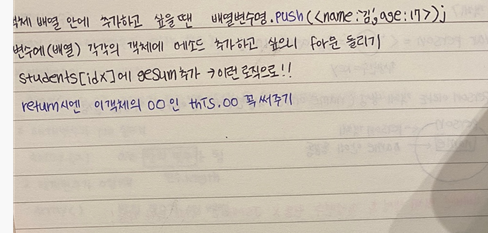 객체 배열 안에 추가하고 싶을 땐 배열변수명.push(<name:김,age:17>);
변수에(배열) 각각의 객체에 메소드 추가하고 싶으니 for문 돌리기
students[idx]에 geSum추가 → 이런 로직으로!!
return시엔 이객체의 00인 thTS.00 꼭 써주기